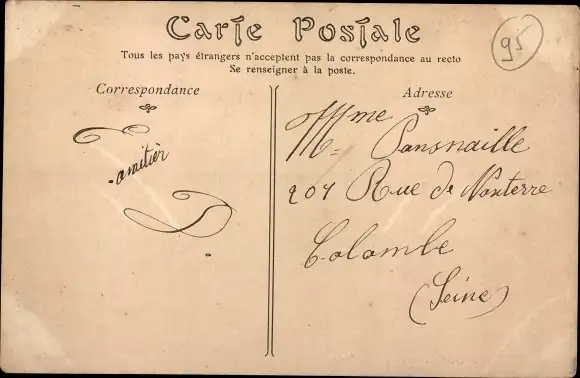 Carte Postale
Tous les pays étrangers n'acceptent pas la correspondance au recto
Se renseigner à la poste.
95
Correspondance
amitièr
Adresse
Mme Pansnaille
207 Rue de Nanterre
Colombe
(Seine)